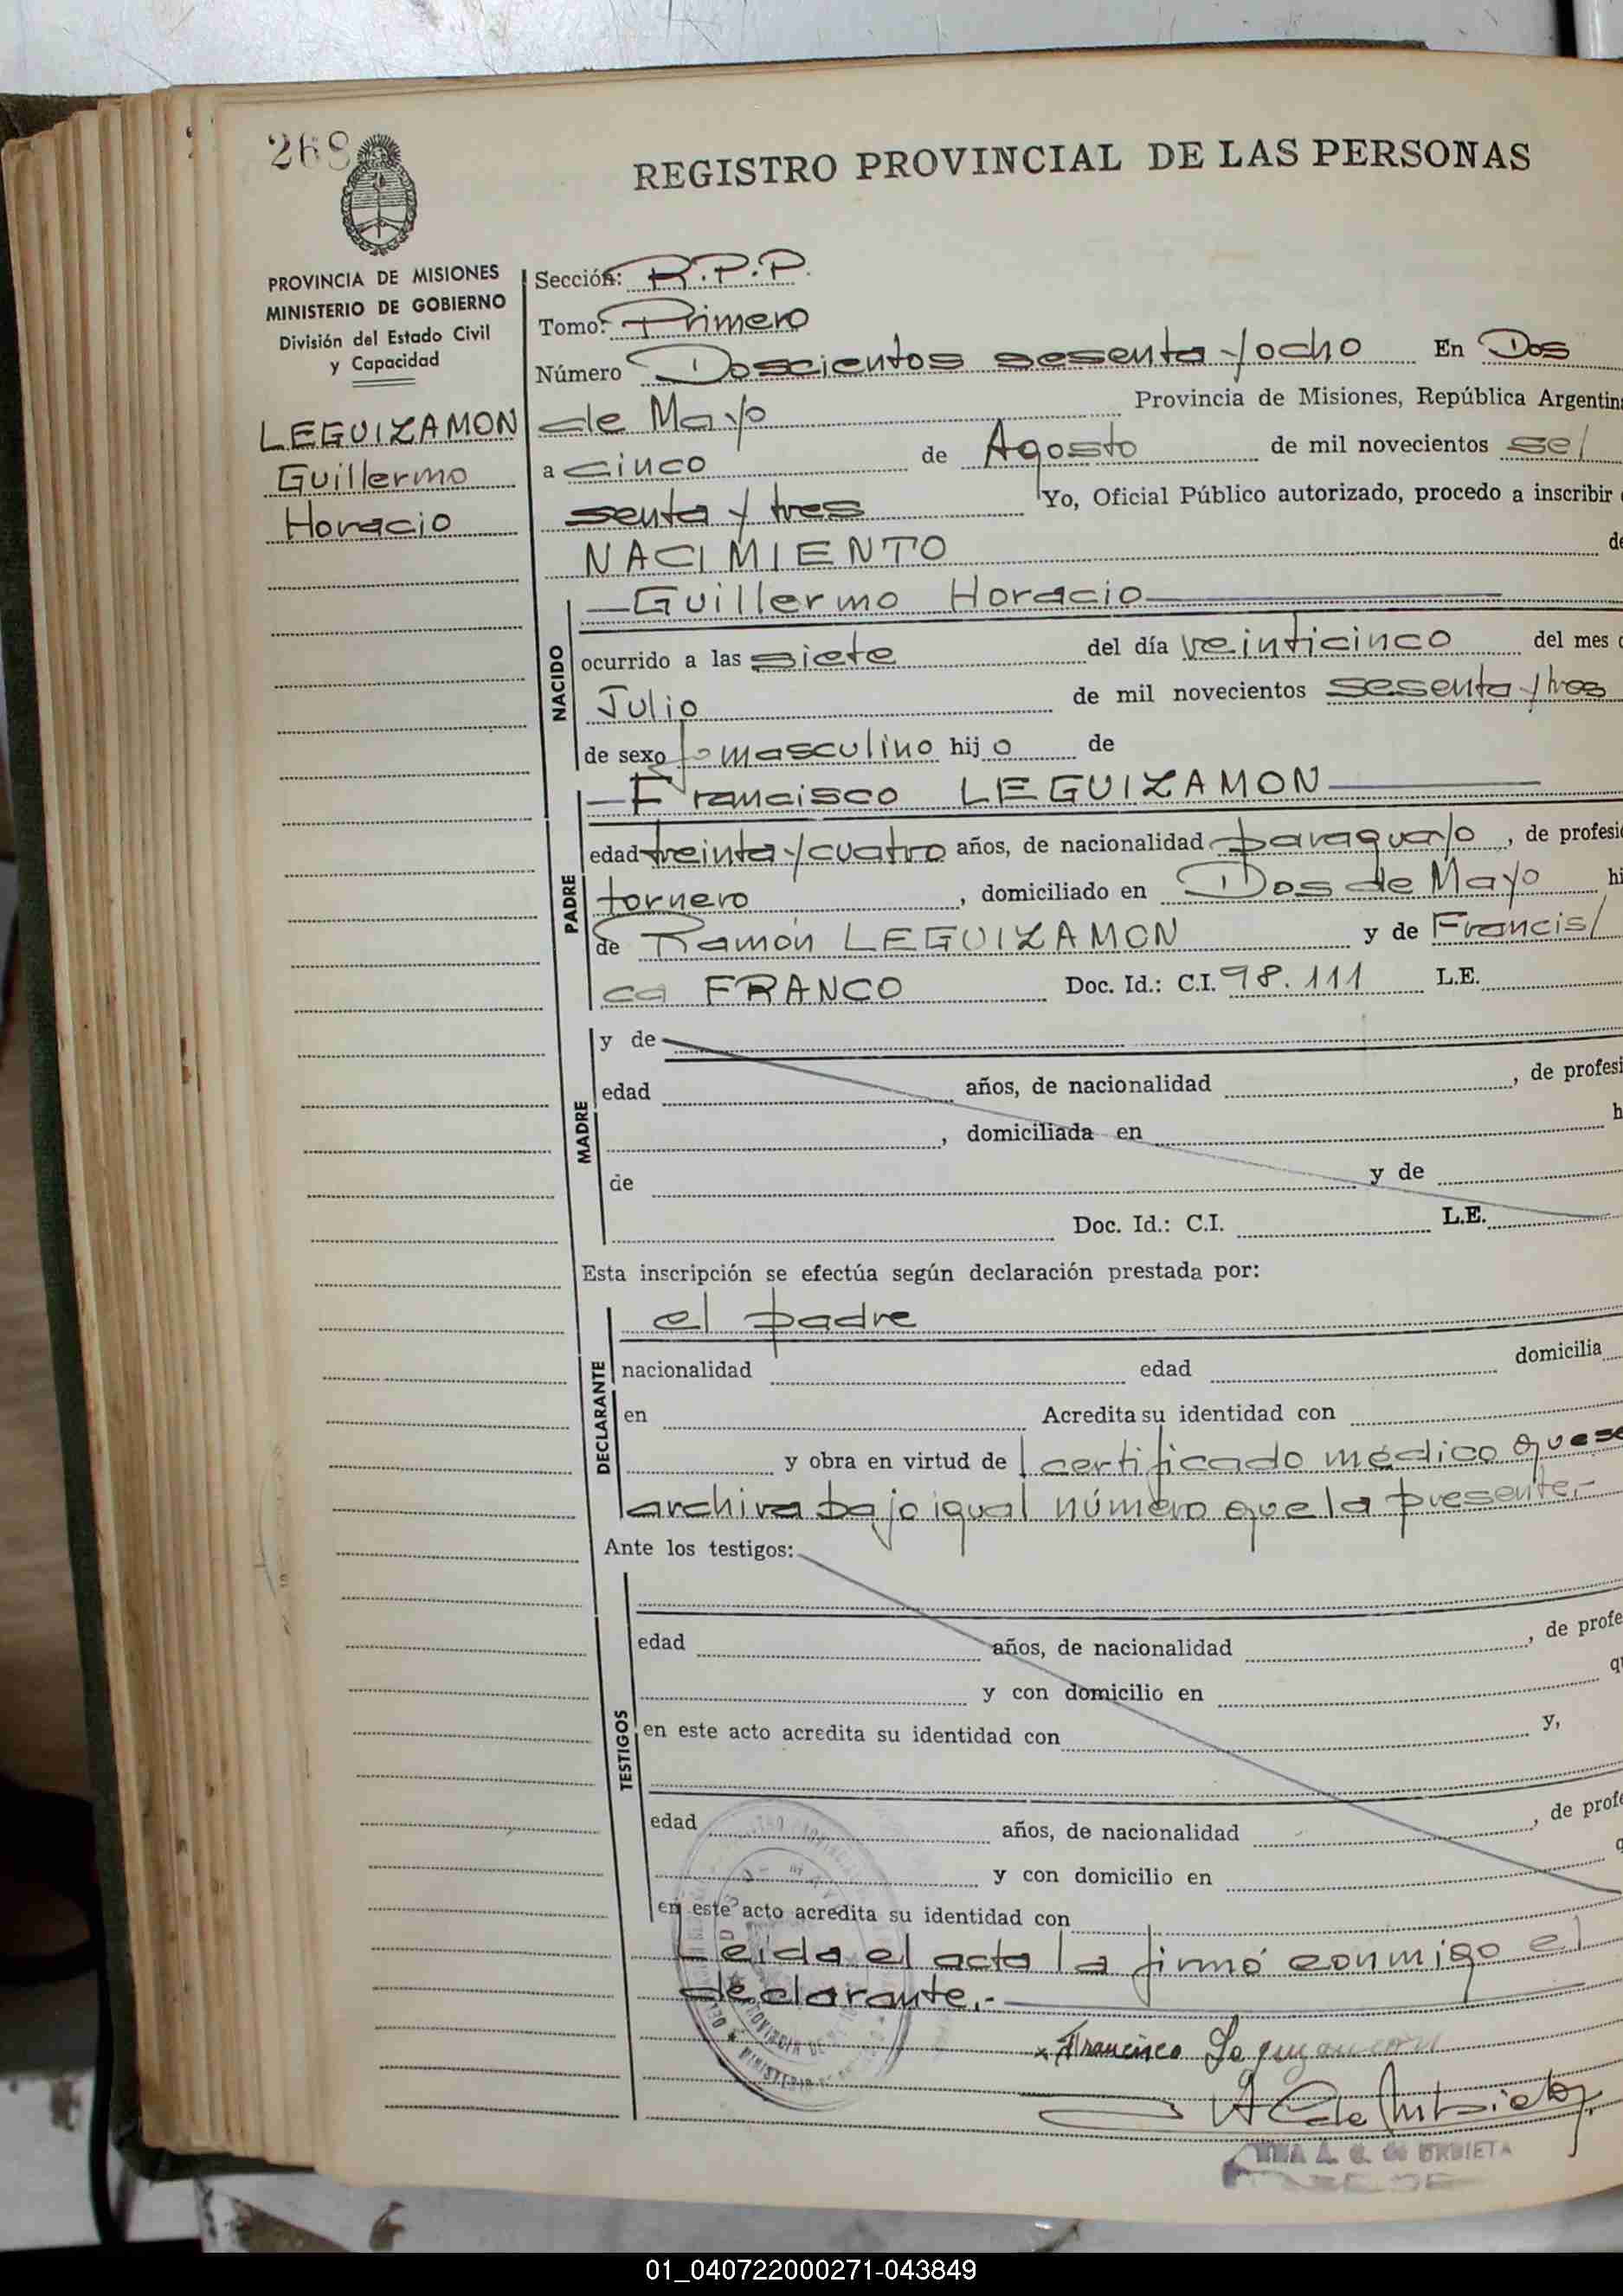 268
REGISTRO PROVINCIAL DE LAS PERSONAS
PROVINCIA DE MISIONES
MINISTERIO DE GOBIERNO
División del Estado Civil
y Capacidad
LEGUIZAMON
Guillermo
Horacio
Sección: R.P.P.
Tomo: Primero
Número Doscientos sesenta y ocho En Dos
de Mayo Provincia de Misiones, República Argentin
a cinco de Agosto de mil novecientos se/
senta y tres Yo, Oficial Público autorizado, procedo a inscribir
NACIMIENTO de
NACIDO
—Guillermo Horacio—
ocurrido a las siete del día veinticinco del mes
Julio de mil novecientos sesenta y tres
de sexo masculino hijo de
PADRE
—Francisco LEGUIZAMON—
edad treinta y cuatro años, de nacionalidad paraguayo, de profesi
tornero, domiciliado en Dos de Mayo hi
de Ramón LEGUIZAMON y de Francis/
ca FRANCO Doc. Id.: C.I. 98.111 L.E.
MADRE
y de
edad años, de nacionalidad , de profesi
, domiciliada en h
de y de
Doc. Id.: C.I. L.E.
Esta inscripción se efectúa según declaración prestada por:
DECLARANTE
el padre
nacionalidad edad domicilia
en Acredita su identidad con
y obra en virtud de certificado médico que se
archiva bajo igual número que la presente.-
Ante los testigos:
TESTIGOS
edad años, de nacionalidad , de profe
y con domicilio en q
en este acto acredita su identidad con y,
edad años, de nacionalidad , de profe
y con domicilio en q
en este acto acredita su identidad con
Leida el acta la firmó conmigo el
declarante.-
x Francisco Leguizamon
A. C. de URBIETA
01_040722000271-043849